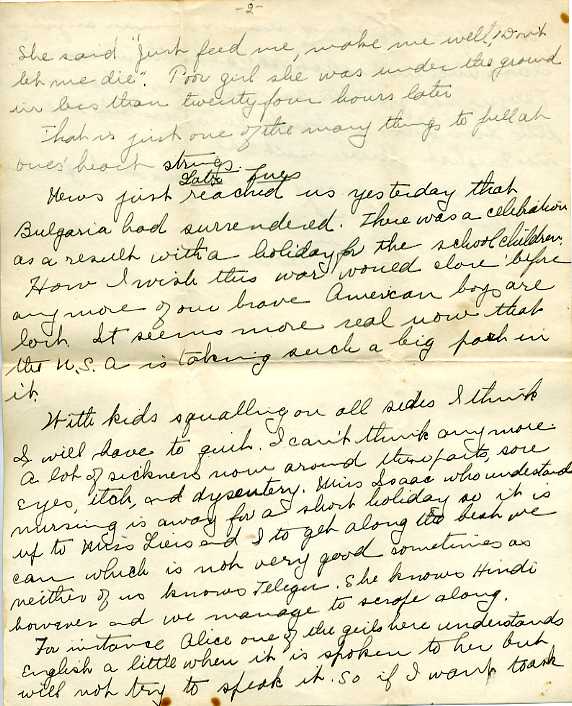 -2-
She said "Just feed me, make me well, Don't
let me die". Poor girl she was under the ground
in less than twenty four hours later
That is just one of the many things to pull at
ones' heart strings.
Later
News just reached us yesterday that
Bulgaria had surrendered. There was a celebration
as a result with a holiday for the school children.
How I wish this war would close before
any more of our brave American boys are
lost. It seems more real now that
the U.S.A is taking such a big part in
it.
With kids squalling on all sides I think
I will have to quit. I can't think any more
A lot of sickness now around these parts, sore
eyes, itch, and dysentery. Miss Isaac who understands
nursing is away for a short holiday so it is
up to Miss and I to get along the best we
can which is not very good sometimes as
neither of us knows Telegu. She knows Hindi
however and we manage to scrape along.
For instance Alice one of the girls here understands
English a little when it is spoken to her but
will not try to speak it. So if I want to ask